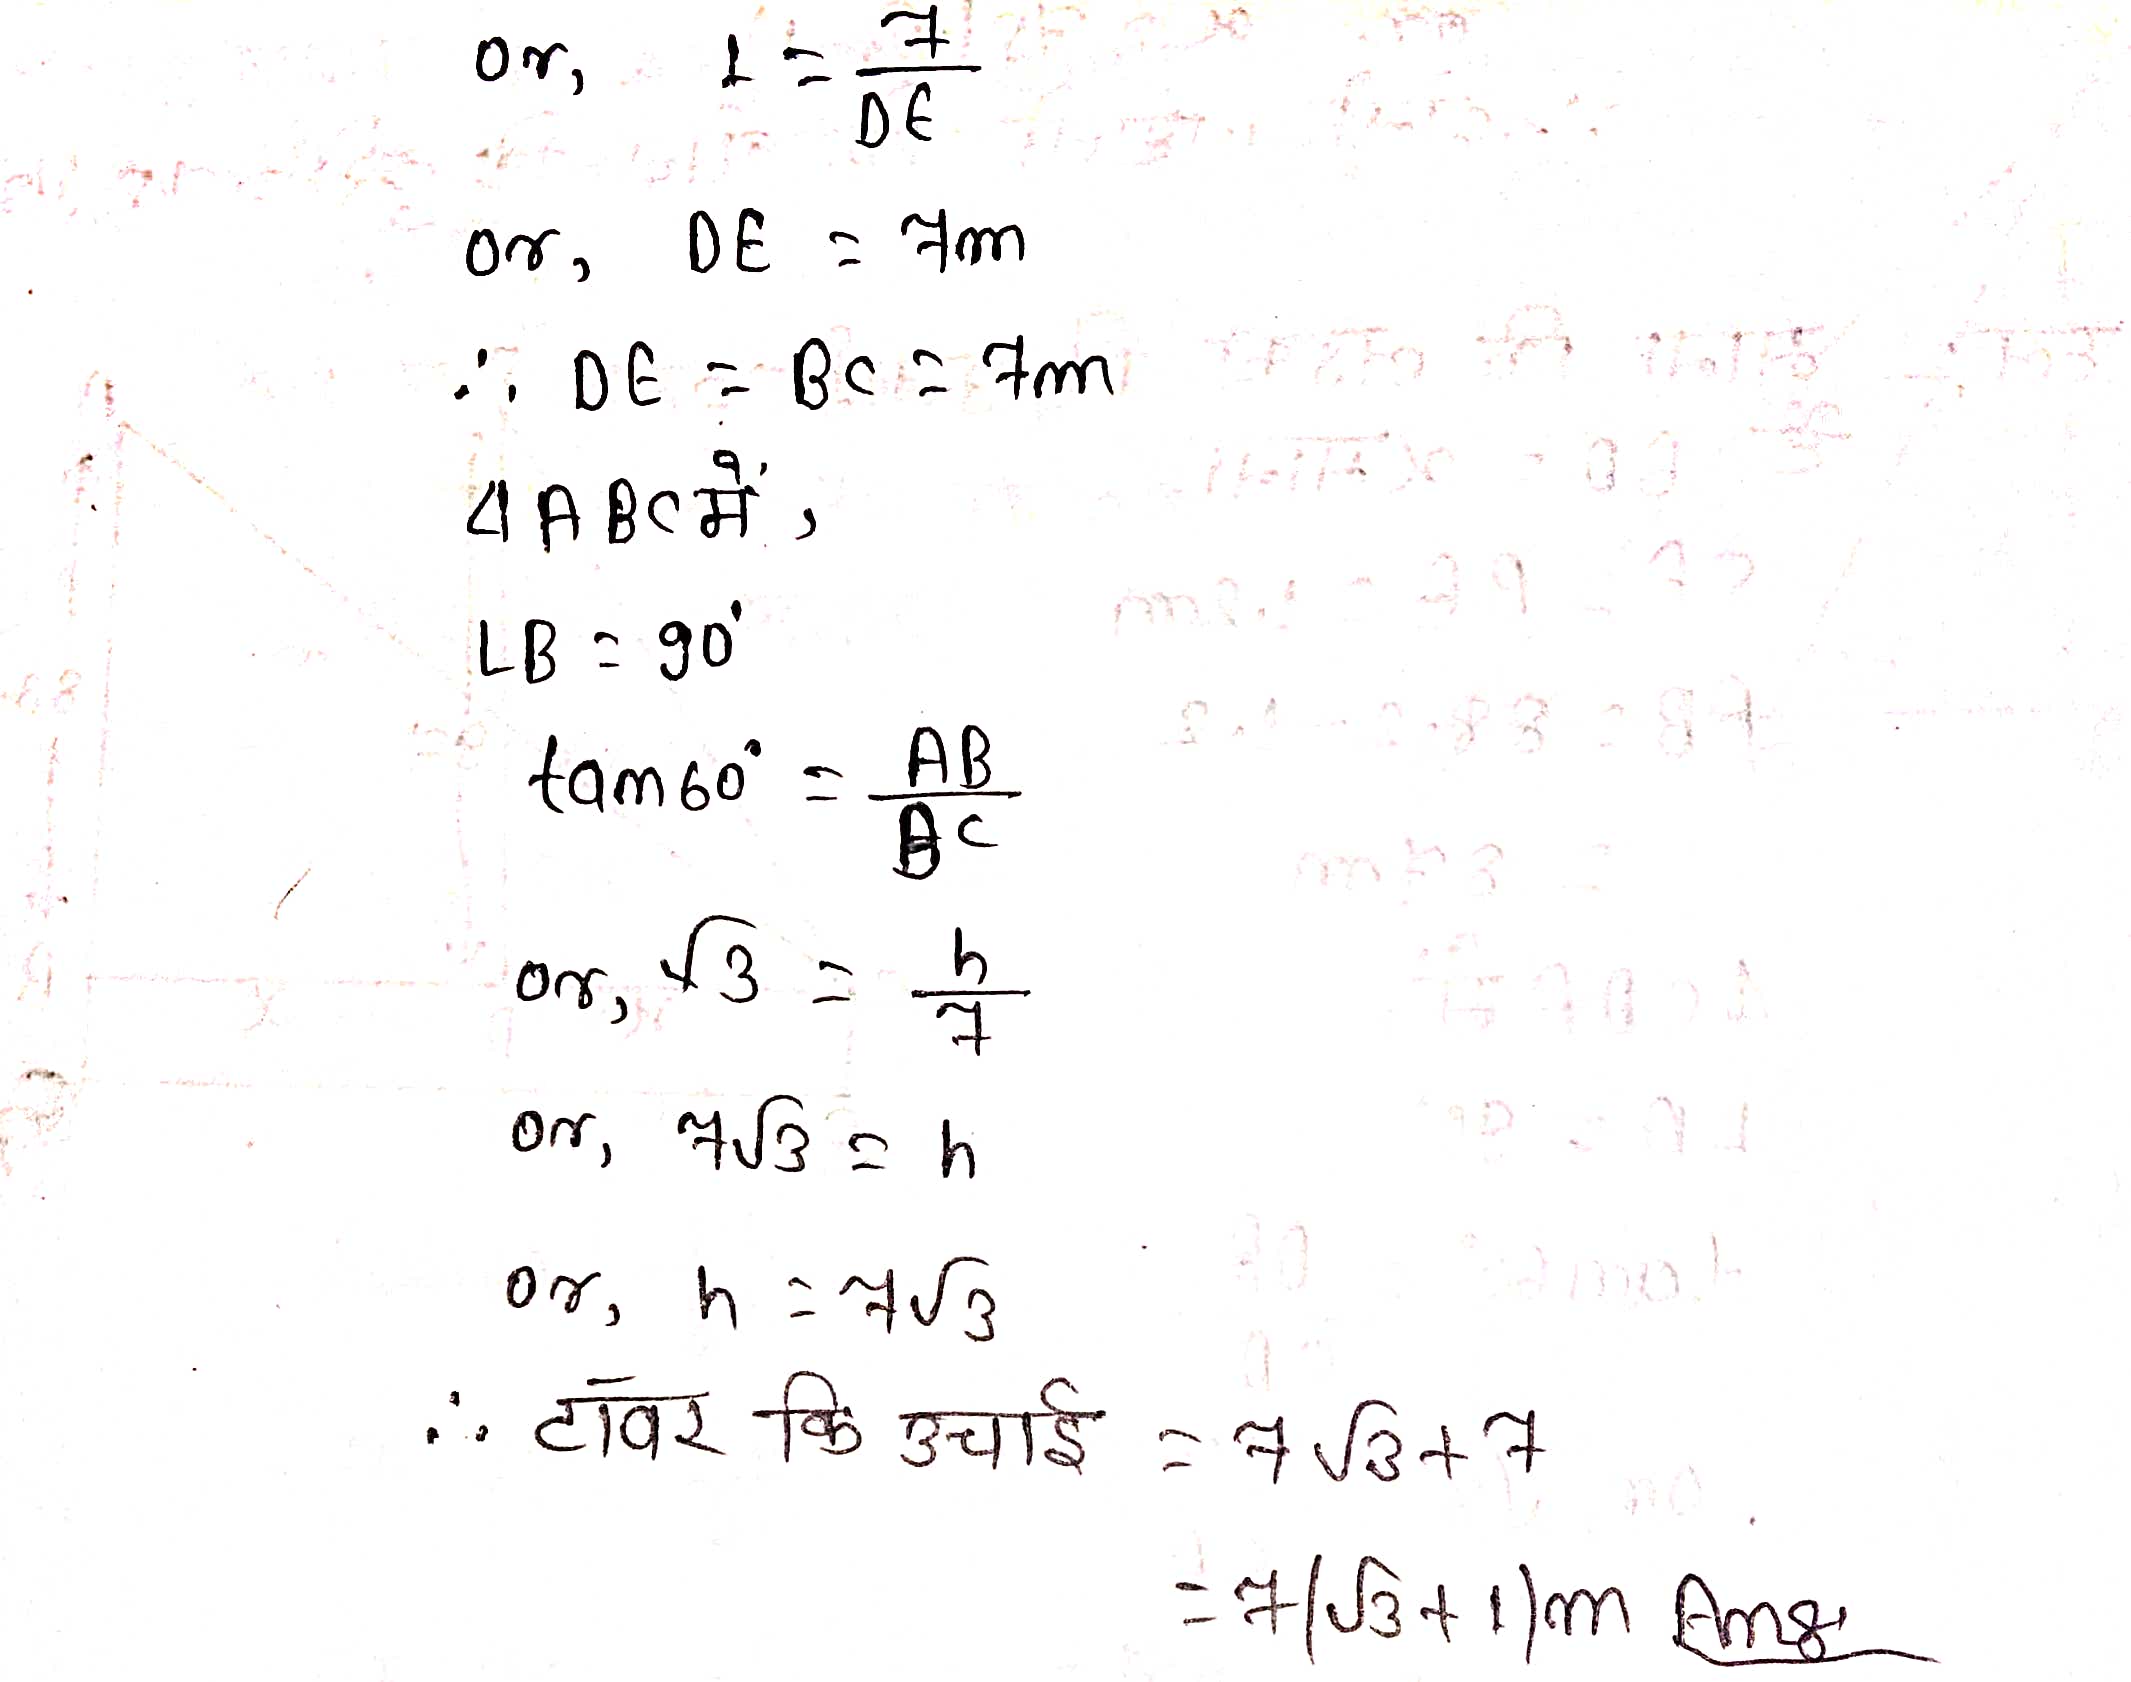 or, 1 = 7/DE
or, DE = 7m
∴ DE = BC = 7m
△ABC में,
∠B = 90°
tan60° = AB/BC
or, √3 = h/7
or, 7√3 = h
or, h = 7√3
∴ टॉवर कि उचाई = 7√3+7
= 7(√3+1)m Ans